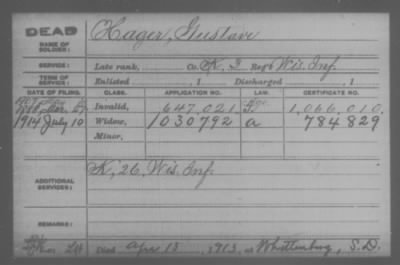 DEAD Hager, Gustave
NAME OF SOLDIER:
SERVICE: Late rank, Co. K, 3 Reg't Wis. Inf.
TERM OF SERVICE: Enlisted , 1 Discharged , 1
DATE OF FILING. CLASS. APPLICATION NO. LAW. CERTIFICATE NO.
Invalid, 647,021 1,066,010
1914 July 10 Widow, 1030792 a 784829
Minor,
ADDITIONAL SERVICES: K, 26, Wis. Inf.
REMARKS:
Died Apr 13, 1913, at S.D.